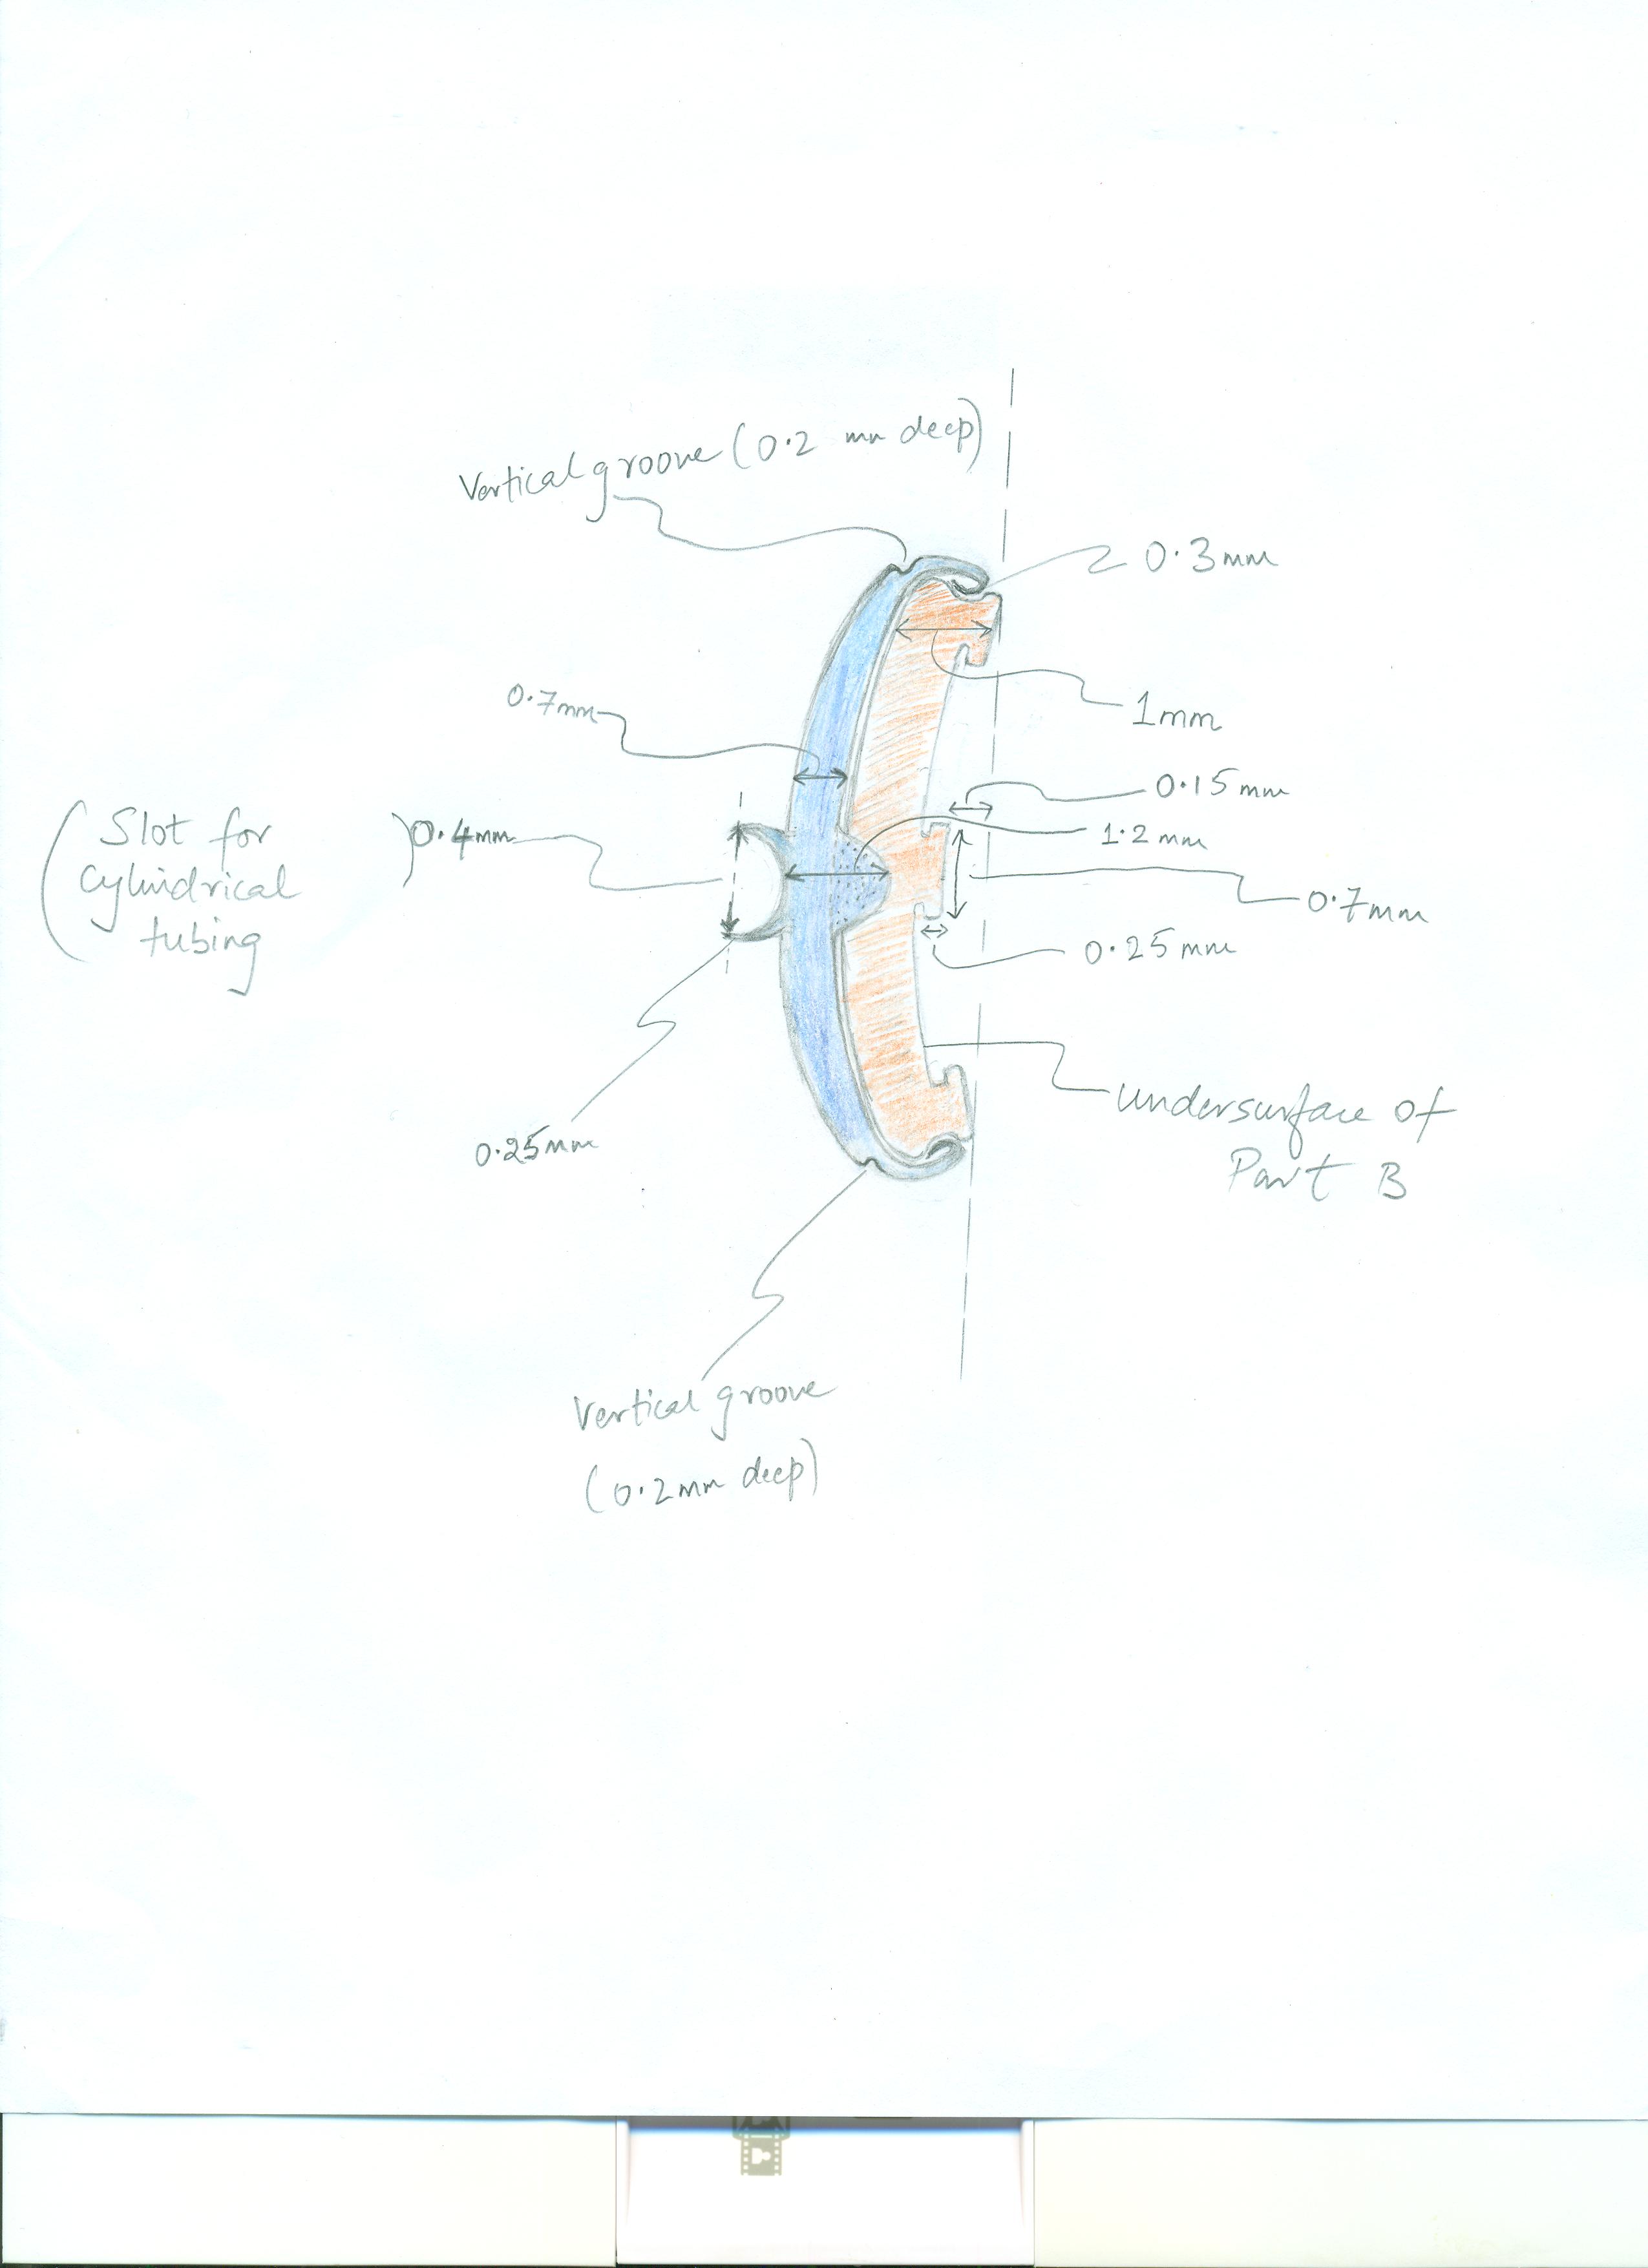 Vertical groove (0.2 mm deep)
0.3mm
0.7mm
1mm
0.15mm
(Slot for
Cylindrical
tubing)
0.4mm
1.2mm
0.7mm
0.25mm
0.25mm
undersurface of
Part B
Vertical groove
(0.2mm deep)